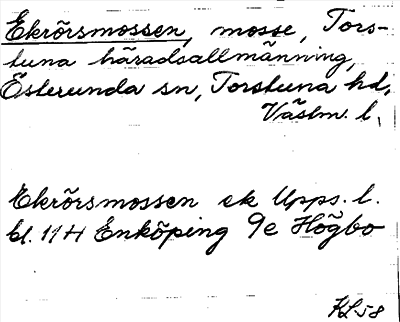 Ekrörsmossen, mosse, Tors-
tuna häradsallmänning,
Österunda sn, Torstuna hd,
Västm. l.
Ekrörsmossen ek Upps. l.
bl. 11H Enköping 9e Högbo
KL-58